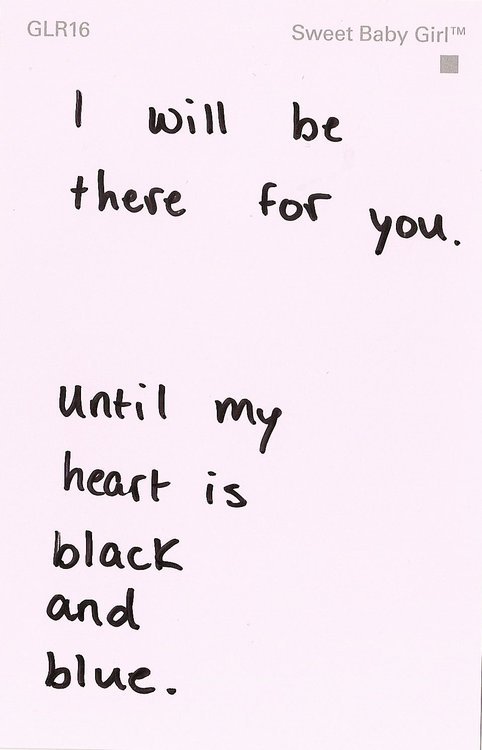 GLR16 Sweet Baby Girl™
I will be
there for you.
Until my
heart is
black
and
blue.